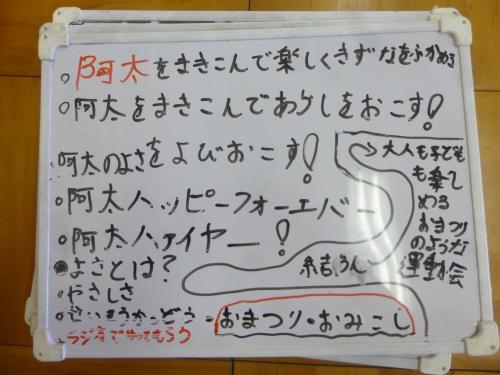 。阿太をまきこんで楽しくきずなをふかめる
。阿太をまきこんであらしをおこす!
阿太のよさをよびおこす!
。阿太ハッピーフォーエバー
。阿太ファイヤー!
●よさとは?
。やさしさ
おまつり・おみこし
大人も子ども
も楽して
める
おまつり
のような
運動会
結ろん